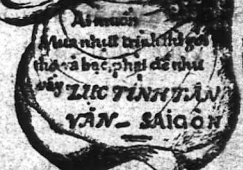 Ai muốn
mua nhựt trình thì gởi
thơ và bạc, phải đề như
vầy LỤC TỈNH TÂN
VĂN_ SAIGON